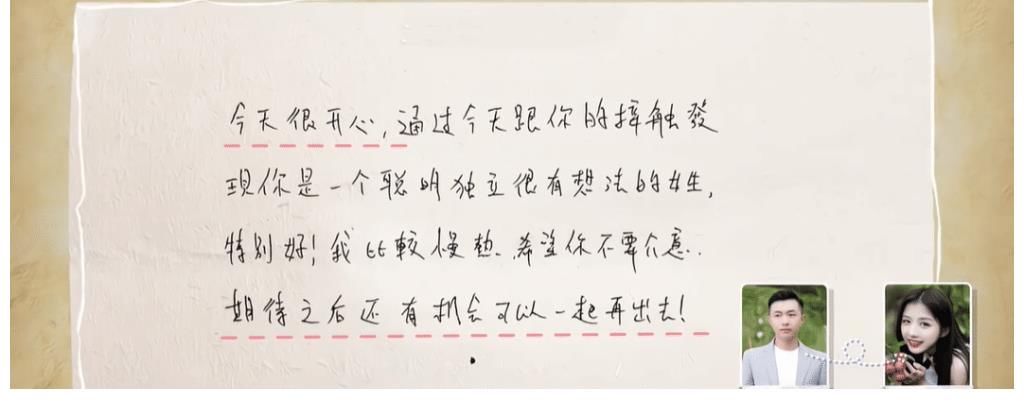 今天很开心,通过今天跟你的接触發
现你是一个聪明独立很有想法的女生,
特别好!我比較慢热.希望你不要介意.
期待之后还有机会可以一起再出去!